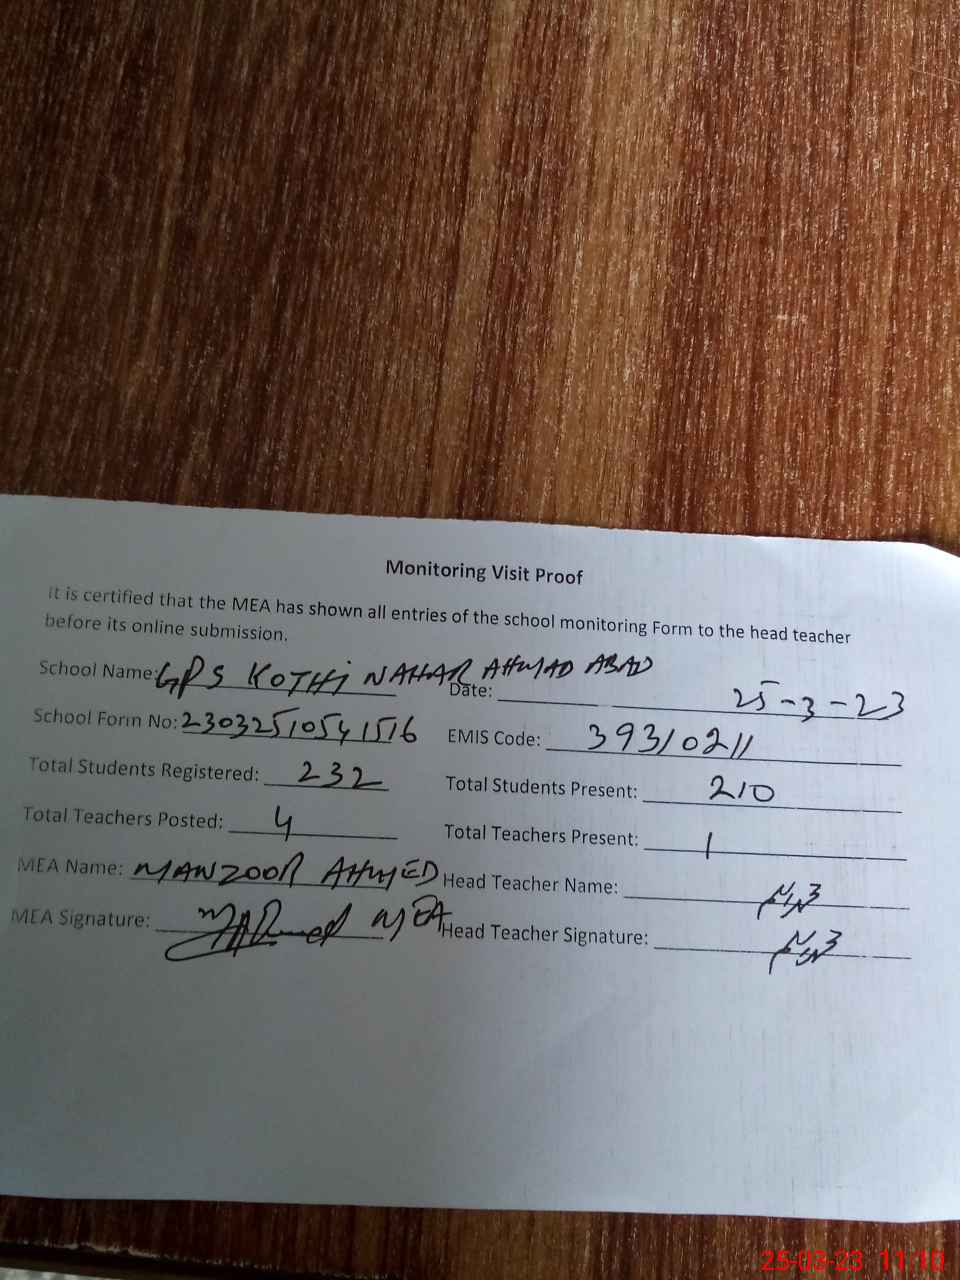 Monitoring Visit Proof
It is certified that the MEA has shown all entries of the school monitoring Form to the head teacher
before its online submission.
School Name: GPS KOTHI NAHAR AHMAD ABAD
Date: 25-3-23
School Form No: 23032510541516 EMIS Code: 39310211
Total Students Registered: 232 Total Students Present: 210
Total Teachers Posted: 4 Total Teachers Present: 1
MEA Name: MANZOOR AHMED Head Teacher Name:
MEA Signature: MEA Head Teacher Signature:
25-03-23 11:10